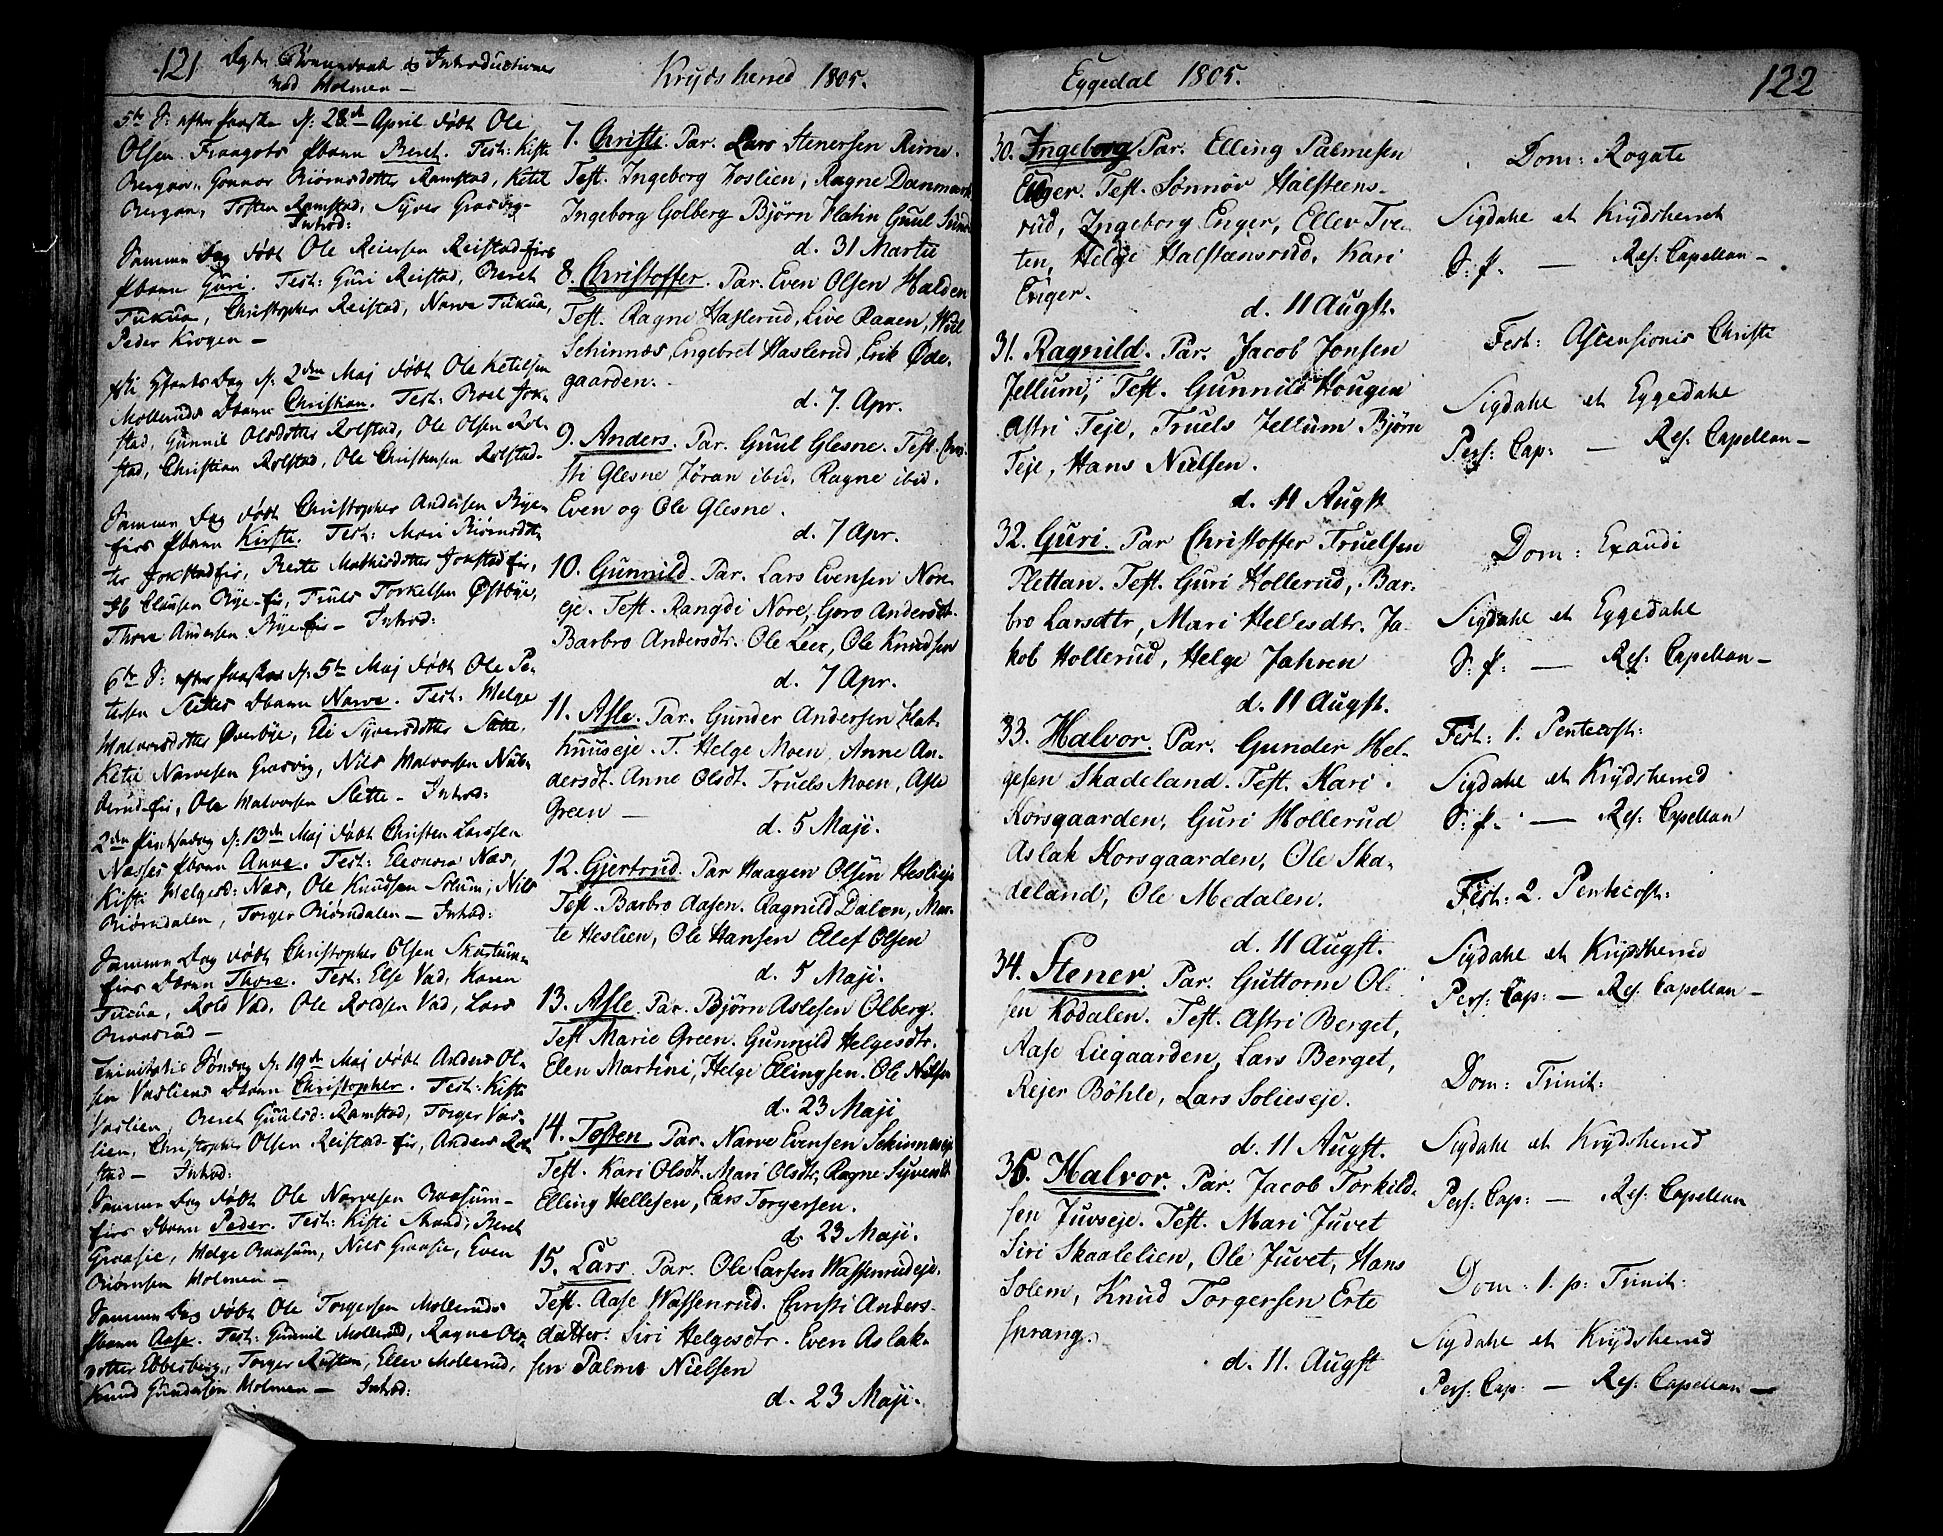 121
Krydsherred 1805.
5te S: efter Paaske d: 28de April døbt Ole
Olsen Frangots Sbarn Beret. Test: Kisti
Bergan, Gonnor Biørnsdotter Ramstad, Ketil
Bergan, Tosten Ramstad, Syver Grasvig-
Introd:
Samme Dag døbt Ole Reiersen Reistad-eies
Guri. Test: Guri Reistad, Beret
Tukua, Christopher Reistad, Narve Tukua,
Peder Krogen –
d: 2den Maj døbt Ole Ketelsen
Molleruds Dbarn Christian. Test:
stad, Gunnil Olsdotter Rolstad, Ole Olsen Rol-
stad, Christian Rolstad, Ole Christensen Rolstad-
Samme Dag døbt Christopher Andersen Bye-
eies Kirsti. Test: Mari Biørnsdot-
ter Jokstadeie, Berte Mathisdotter Jokstadeie,
Clausen Bye-eie, Truls Torkelsen Østbye,
Thore Andersen Bye-eie – Introd:
6te S: efter Paaske d: 5te Maj døbt Ole Pe-
tersen Slettes Dbarn Narve. Test: Helge
Halvorsdotter Øverbye, Eli Syversdotter Slette,
Ketil Narvesen Grasvig, Nils Halvorsen Nub-
berud-eie, Ole Halvorsen Slette – Introd:
2den Pintsedag d: 13de Maj døbt Christen Larssen
Nasses Anne. Test: Eleonora Næs,
Kisti Helgesd: Næs, Ole Knudsen Solum, Nils
Biørndalen, Torger Biørndalen – Introd:
Samme Dag døbt Christopher Olsen
eies Dbarn Thore. Test: Else Vad, Karen
Tukua, Rold Vad, Ole Roldsen Vad, Lars
–
Trinitatis Søndag d: 19de Maj døbt Anders Ol-
sen Vasliens Dbarn Christopher. Test: Kisti
Vaslien, Beret Guulsd: Ramstad, Torger Vas-
lien, Christopher Olsen Reistad-eie, Anders Rol-
stad – Introd:
Samme Dag døbt Ole Narvesen Raasum-
eies Dbarn Peder. Test: Kisti Strand, Beret
Graasie, Helge Raasum, Nils Graasie, Even
Biørnsen Holmen –
Samme Dag døbt Ole Torgersen Molleruds
Aase. Test: Gunnil Mollerud, Ragne Ols-
dotter Ebbesberg, Torger Rusten, Ellev Mollerud,
Knud Gundersen Holmen – Introd:
7. Christi. Par. Lars Stenersen Rime.
Test. Ingeborg Zoslien, Ragne Danmark
Ingeborg Golberg Bjørn Flatin Guul Sund
d. 31 Martii
8. Christoffer. Par. Even Olsen Halden
Test. Ragne Haslerud, Live Raaen,
Schinnæs, Engebret Haslerud, Erik Øde-
gaarden.
d. 7. Apr.
9. Anders. Par. Guul Glesne. Test. Chri-
sti Glesne Jøran ibid. Ragne ibid.
Even og Ole Glesne.
d. 7 Apr.
10. Gunnild. Par. Lars Evensen Nor-
eje. Test. Rangdi Nore, Goro Andersdt.
Barbro Andersdtr. Ole Leer, Ole Knudsen
d. 7 Apr.
11. Asle. Par. Gunder Andersen Flat-
huuseje. T. Helge Moen, Anne An-
dersdt. Anne Olsdt. Truels Moen, Asle
Green –
d. 5 Maji.
12. Gjertrud. Par Haagen Olsen Heslieje
Test. Barbro Aasen. Ragnild Dalen, Mar-
te Heslien, Ole Hansen Elef Olsen
d. 5 Maji.
13. Asle. Par. Bjørn Aslesen Olberg.
Test Marie Green. Gunnild Helgesdtr.
Elen Martini, Helge Ellingsen. Ole Nilsen
d. 23 Maji
14. Tosten Par. Narve Evensen Schinneseje
Test. Kari Olsdt. Mari Olsdtr, Ragne Syversdt.
Elling Hellesen, Lars Torgersen.
d. 23 Maji.
15. Lars. Par. Ole Larsen Wassenrudeje.
Test. Aase Wassenrud. Christi Anders-
datter. Siri Helgesdtr. Even Aslak-
sen Palme Nielsen
d. 23 Maji.
Eggedal 1805.
122
30. Ingeborg Par. Elling Palmesen
Enger. Test. Sønnøv Halsteens-
rud, Ingeborg Enger, Ellev Tve-
ten, Helge Halstænsrud, Kari
Enger.
d. 11 Augst.
31. Ragnild. Par. Jacob Jonsen
Jellum, Test. Gunnild Hougen
Astri Teje, Truels Jellum Bjørn
Teje, Hans Nielsen.
d. 11 Augst
32. Guri. Par Christoffer Truelsen
Plettan. Test. Guri Hollerud, Bar-
bro Larsdtr, Mari Hellesdtr. Ja-
kob Hollerud, Helge Jahren
d. 11 Augst.
33. Halvor. Par. Gunder Hel-
gesen Skadeland. Test. Kari
Korsgaarden, Guri Hollerud
Aslak Korsgaarden, Ole Ska-
deland, Ole Medalen.
d. 11 Augst.
34. Stener. Par. Guttorm Ol-
sen Kodalen. Test. Astri Berget,
Aase Liegaarden, Lars Berget,
Rejer Böhle, Lars Solieseje.
d. 11 Augst.
36. Halvor. Par. Jacob Torkild-
sen Juvseje. Test. Mari Juvet
Siri Skaalelien, Ole Juvet, Hans
Solem, Knud Torgersen Erte
sprang.
d. 11. Augst
Dom: Rogate
Sigdahl et Krydsherred
S: P. — Res: Capellan –
Fest: Ascensionis Christi
Sigdahl et Eggedahl
Pers: Cap: — Res: Capellan –
Dom: Exaudi
Sigdahl et Eggedahl
S: P. — Res: Capellan –
Fest: 1. Pentecost:
Sigdahl et Krydsherred
S: P. — Res: Capellan
Fest: 2. Pentecost:
Sigdahl et Krydsherred
Pers: Cap: — Res: Capellan –
Dom: Trinit:
Sigdahl et Krydsherred
Pers: Cap: — Res: Capellan
Dom: 1. p: Trinit:
Sigdahl et Krydsherred
Pers: Cap: — Res: Capellan –